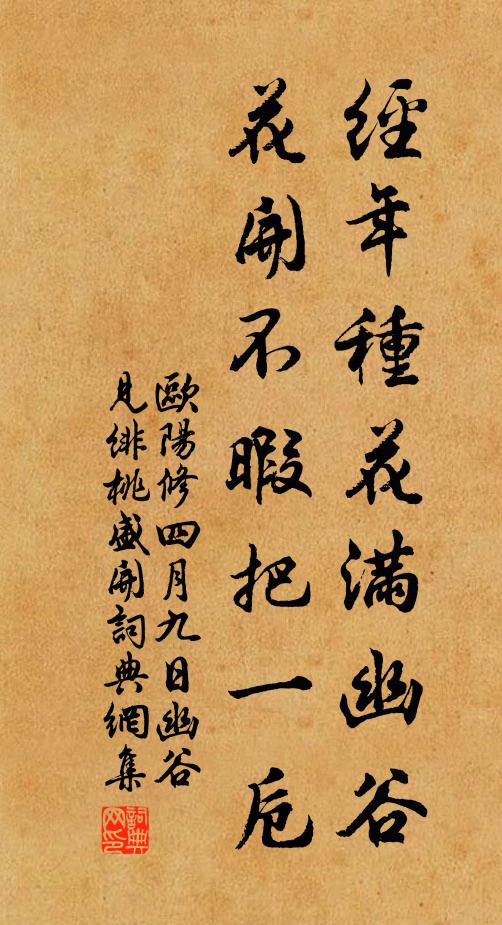 經年種花滿幽谷
花開不暇把一卮
歐陽修四月九日幽谷
見緋桃盛開詞典網集
詞典
网印